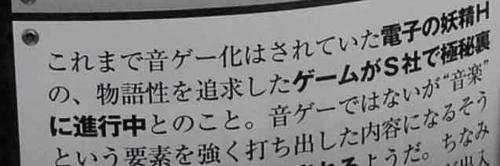 これまで音ゲー化はされていた電子の妖精H
の、物語性を追求したゲームがS社で極秘裏
に進行中とのこと。音ゲーではないが“音楽”
という要素を強く打ち出した内容になるそう
うだ。ちなみ